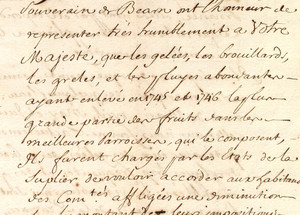 Souverain de Bearn ont l'honneur de
representer tres humblement a Votre
Majesté, que les gelées, les brouillards,
les greles, et les pluyes abondantes
ayant enlevé en 1745 et 1746 la plus
grande partie des fruits dans les
meilleures Parroisses, qui le composent,
Ils furent chargés par les Etats de la
suplier de vouloir accorder aux habitans
des Com.tés affligées une diminution
leurs impositions